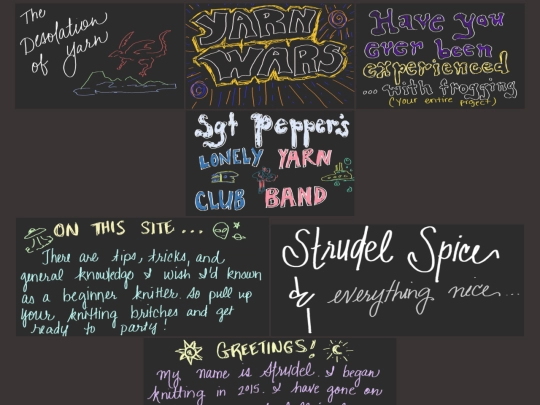 The
Desolation
of Yarn
YARN
WARS
Have you
ever been
experienced
...with frogging
(your entire project)
Sgt Pepper's
LONELY YARN
CLUB BAND
ON THIS SITE...
There are tips, tricks, and
general knowledge I wish I'd known
as a beginner knitter. So pull up
your knitting britches and get
ready to party!
Strudel Spice
& everything nice...
GREETINGS!
My name is Strudel. I began
knitting in 2015. I have gone on